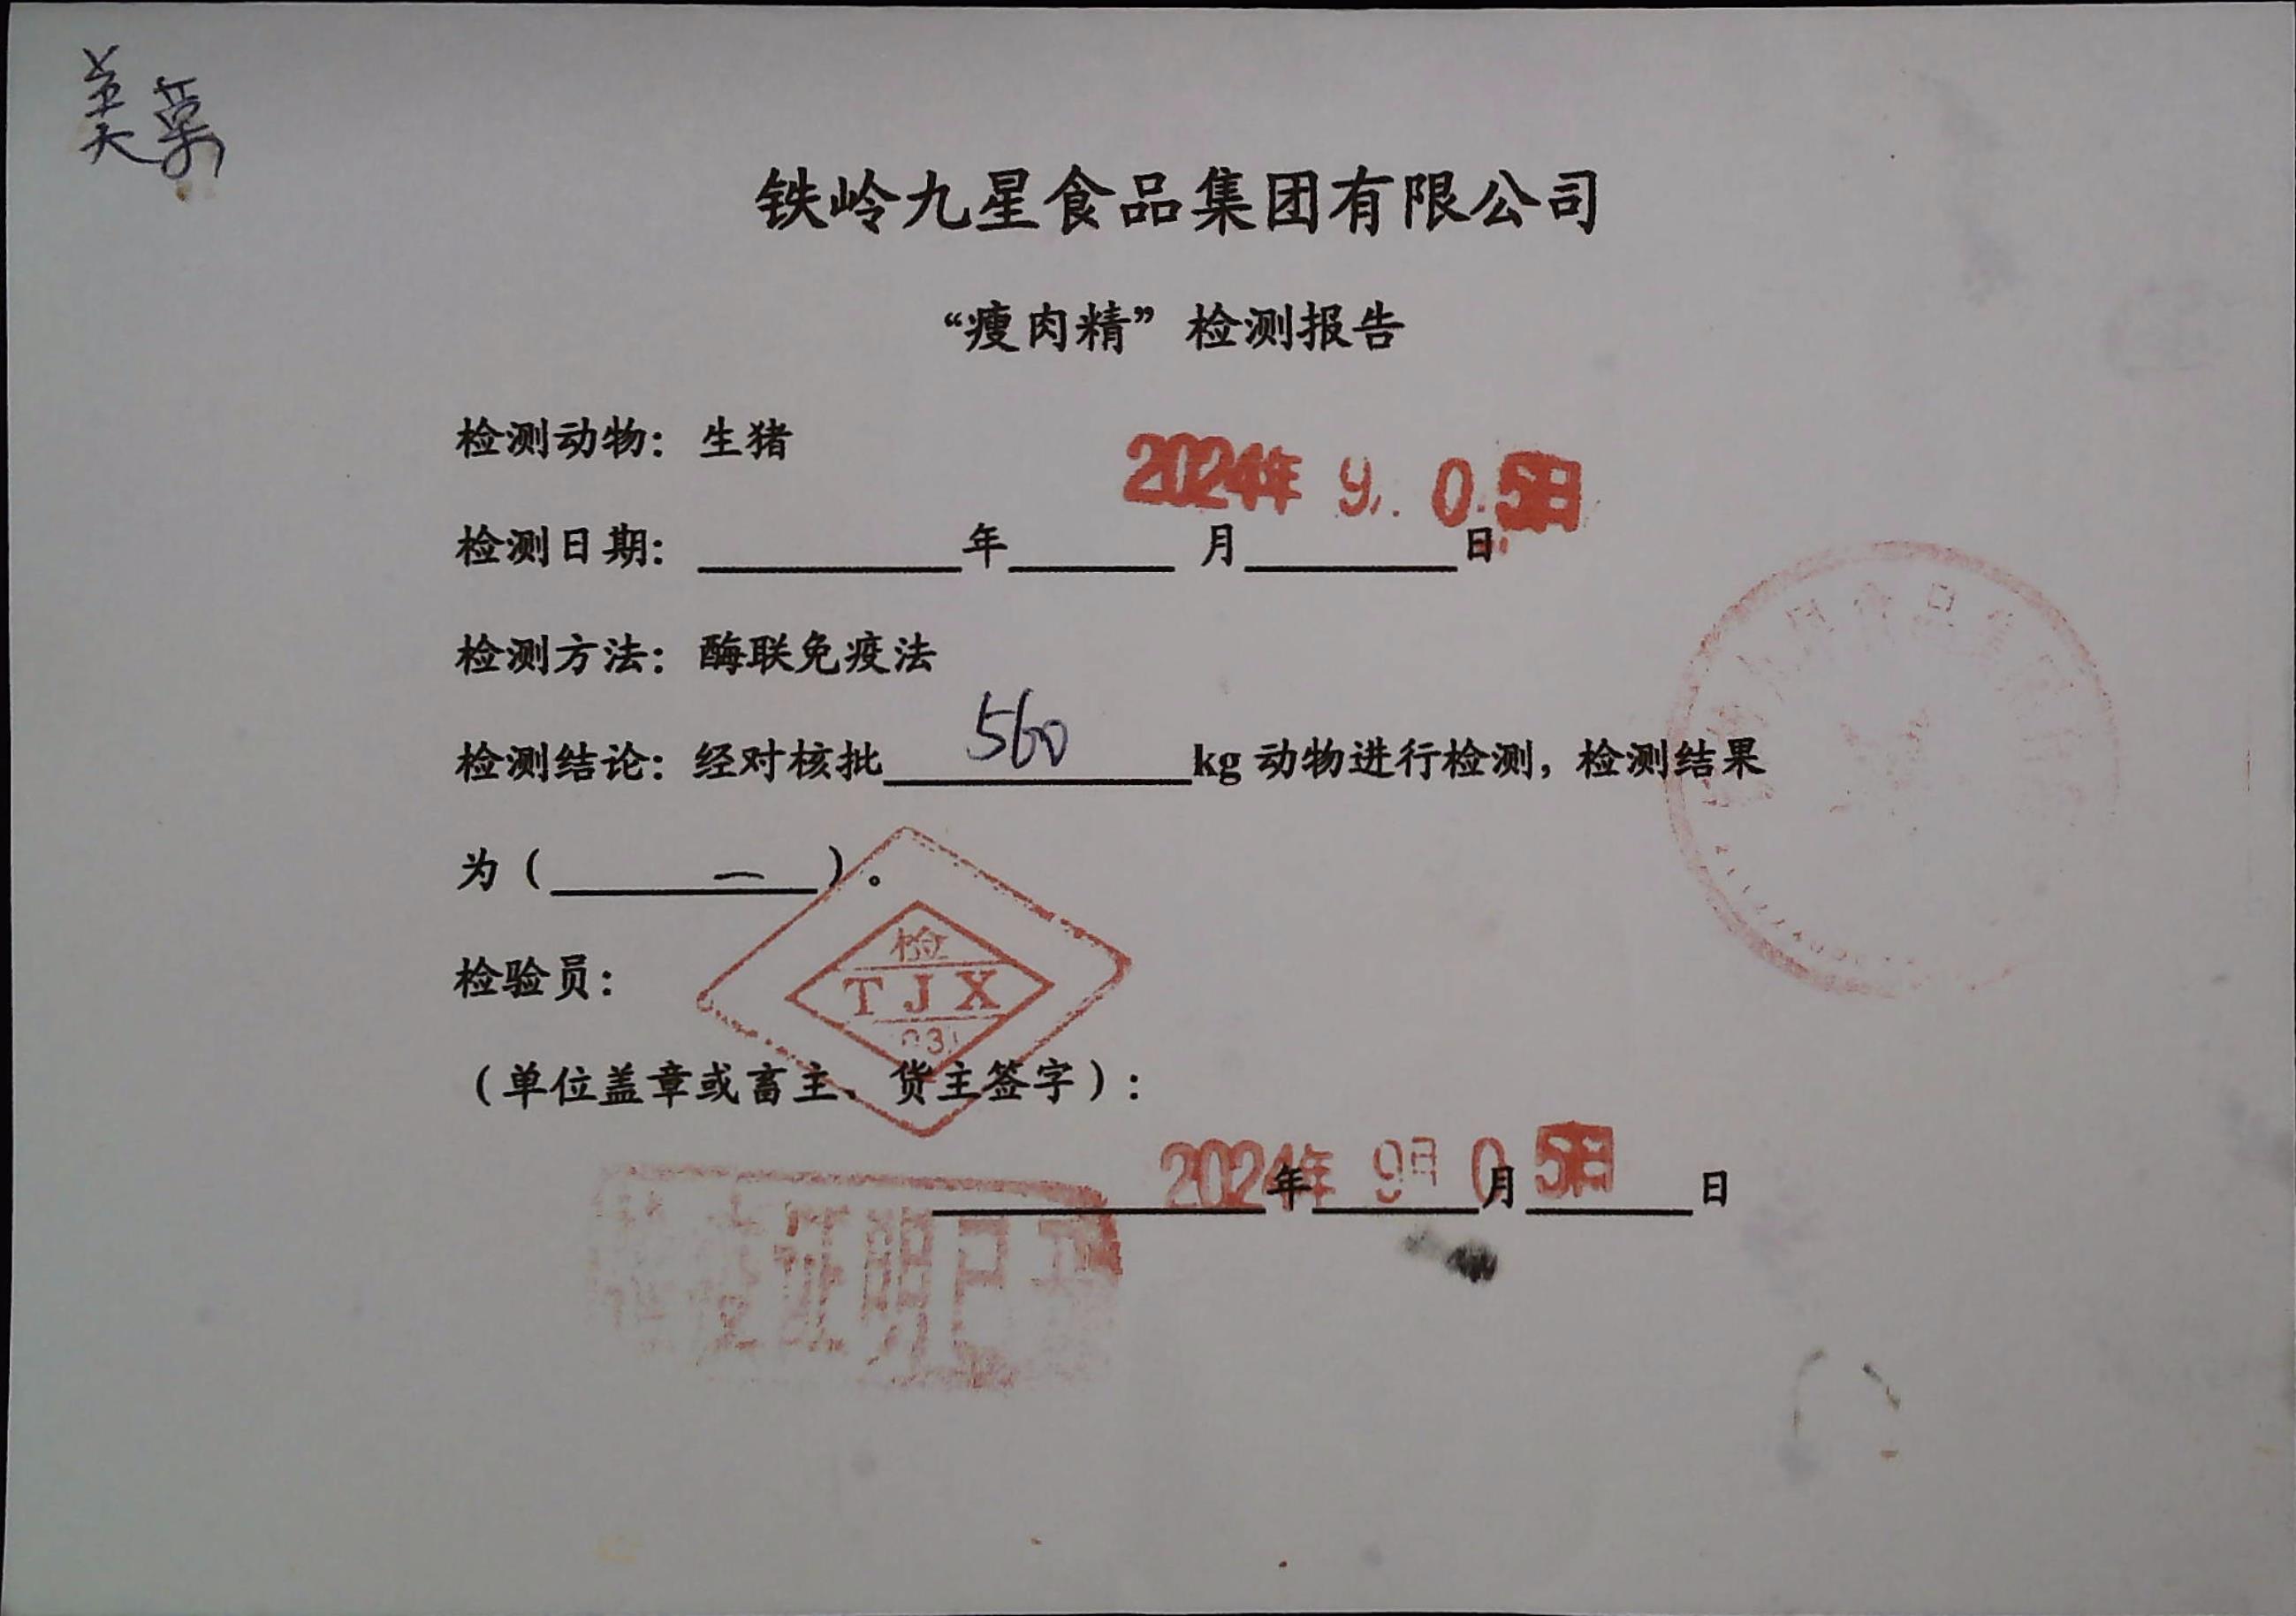 铁岭九星食品集团有限公司
“瘦肉精”检测报告
检测动物：生猪
2024年 9. 05日
检测日期：______年____月____日
检测方法：酶联免疫法
检测结论：经对核批 560 kg 动物进行检测，检测结果
为（ — ）。
检
TJX
检验员：
（单位盖章或畜主、货主签字）：
2024年 9月 05日
年 月 日
证明已